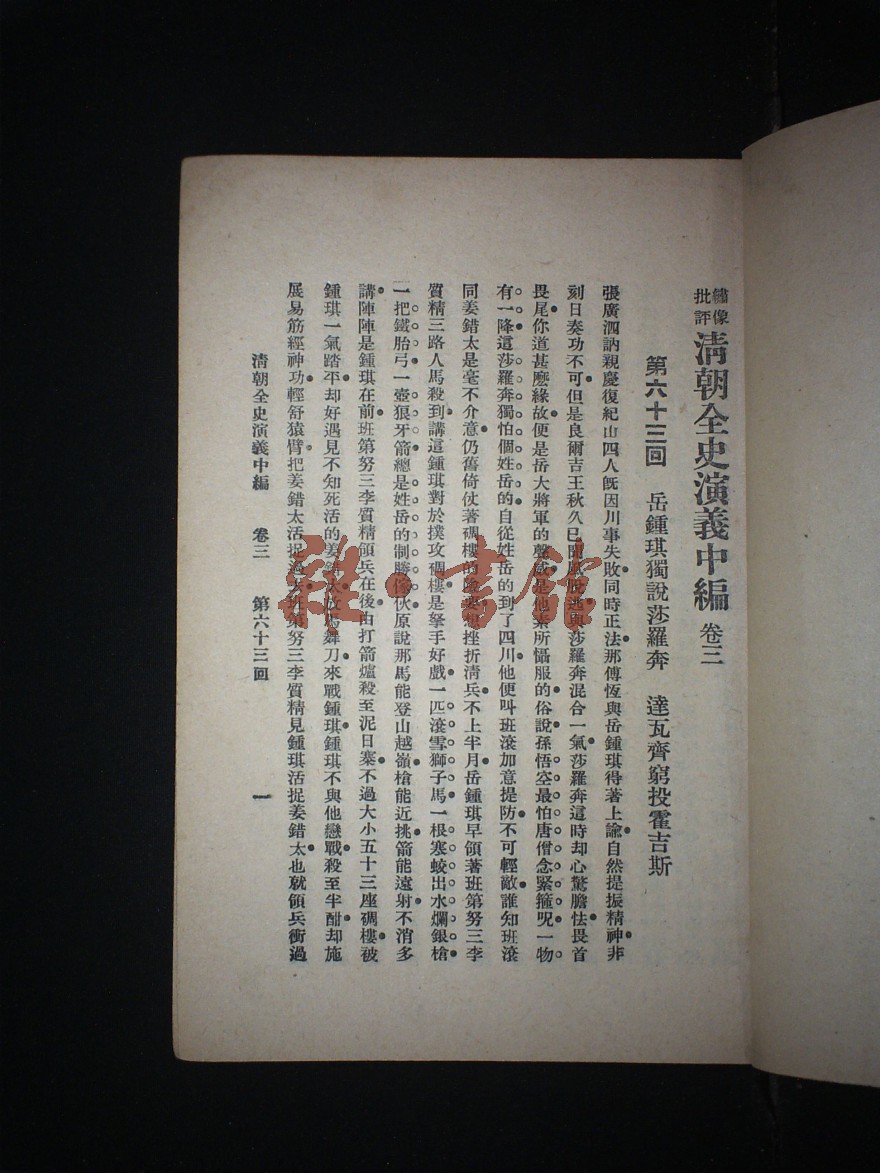 繡像批評 清朝全史演義中編 卷三
第六十三回 岳鍾琪獨說莎羅奔 達瓦齊窮投霍吉斯
張廣泗訥親慶復紀山四人旣因川事失敗同時正法那傅恆與岳鍾琪得著上諭自然提振精神非
刻日奏功不可但是良爾吉王秋久已聞風脫逃與莎羅奔混合一氣莎羅奔這時却心驚膽怯畏首
畏尾你道甚麽緣故便是岳大將軍的聲威是他素所懾服的俗說孫悟空最怕唐僧念緊箍呪一物
有一降這莎羅奔獨怕個姓岳的自從姓岳的到了四川他便叫班滾加意提防不可輕敵誰知班滾
同姜錯太是毫不介意仍舊倚仗著碉樓的險要想挫折淸兵不上半月岳鍾琪早領著班第努三李
質精三路人馬殺到講這鍾琪對於撲攻碉樓是拏手好戲一匹滾雪獅子馬一根寒蛟出水爛銀槍
一把鐵胎弓一壺狼牙箭總是姓岳的制勝傢伙原說那馬能登山越嶺槍能近挑箭能遠射不消多
講陣陣是鍾琪在前班第努三李質精領兵在後由打箭爐殺至泥日寨不過大小五十三座碉樓被
鍾琪一氣踏平却好遇見不知死活的姜錯太放馬舞刀來戰鍾琪鍾琪不與他戀戰殺至半酣却施
展易筋經神功輕舒猿臂把姜錯太活捉過去班第努三李質精見鍾琪活捉姜錯太也就領兵衝過
淸朝全史演義中編 卷三 第六十三回 一
雅·書館